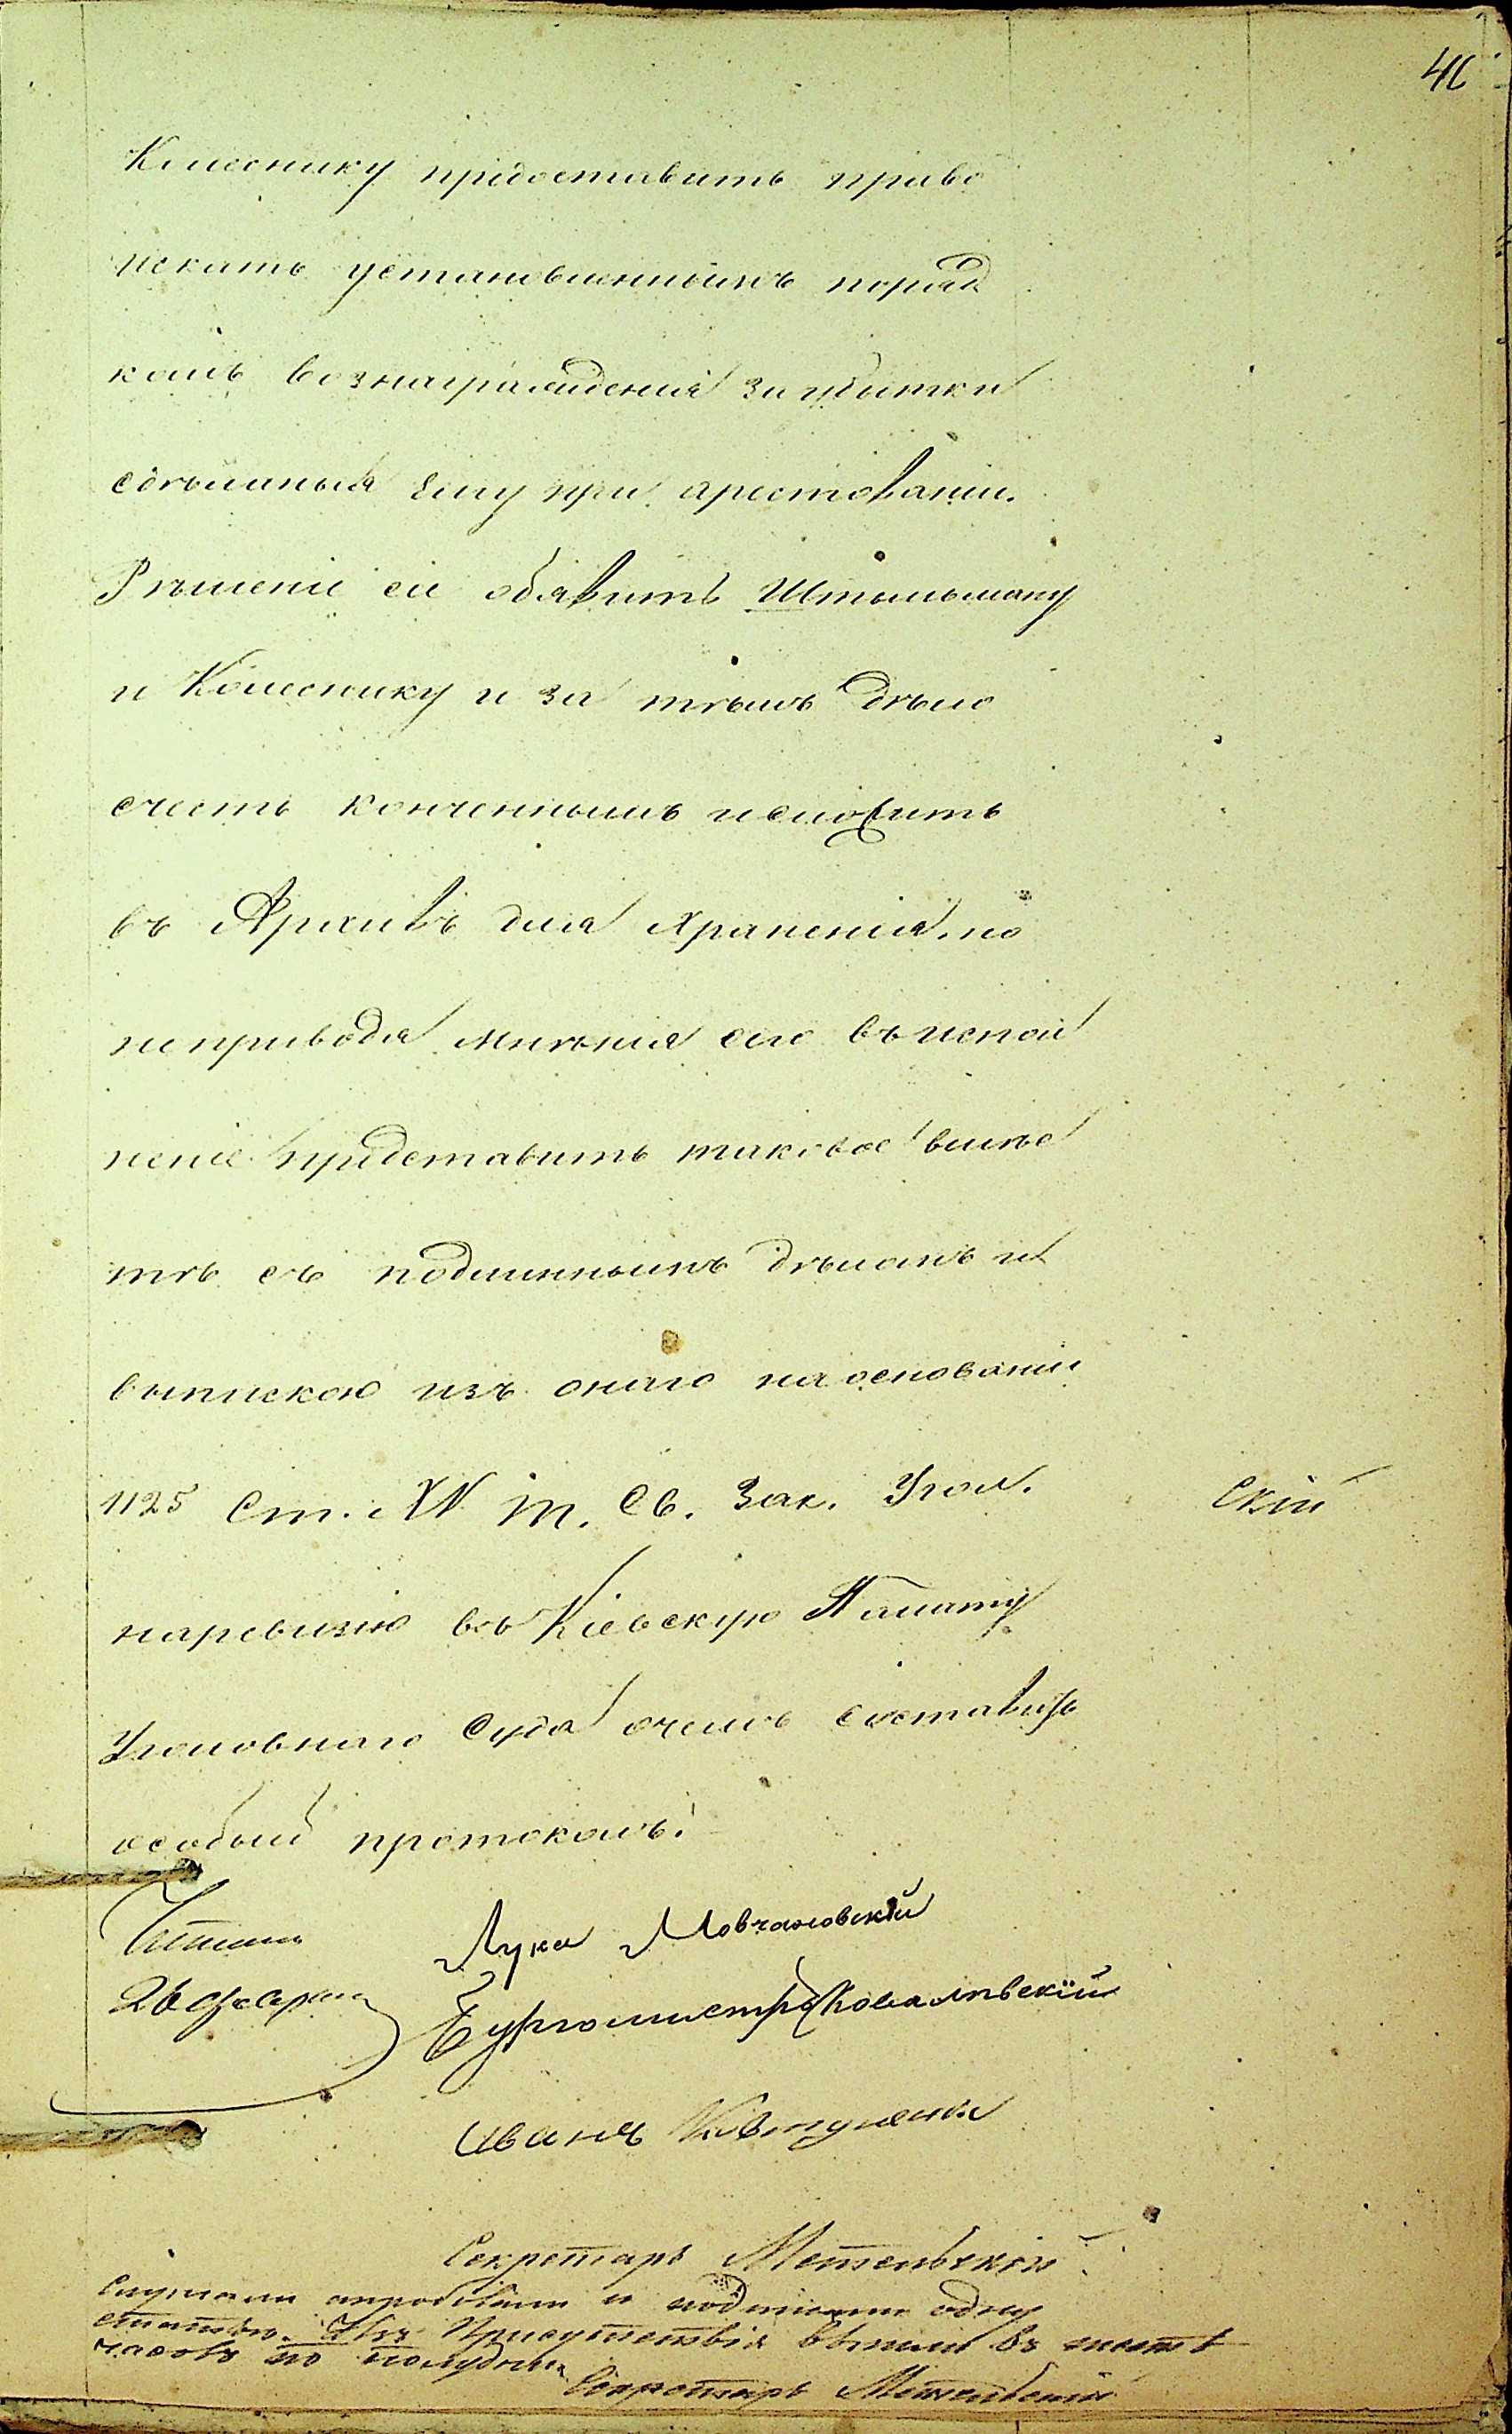 46
Колеснику предоставить право
искать установленнымъ поряд
комъ вознагражденія за убытки
сдѣланныя ему при арестованіи.
Рѣшеніе сіе обявить Штыльману
и Колеснику и за тѣмъ дѣло
счесть конченнымъ и сложить
въ Архивъ для храненія, но
неприводя мнѣнія сего въ испол
неніе представить таковое вмѣс
тѣ съ подлиннымъ дѣломъ и
выпискою изъ онаго на основаніи
1125 Ст. XV т. Св. Зак. Угол.
скій
наревизію въ Кіевскую Палату
Уголовнаго Суда очемъ составить
особый протоколъ.
Читалъ
Лука Мовчановскій
Бургомистръ Ковалѣвскій
Иванъ Ковтуненко
Секретарь Метельскій
Слушали апробовали и подписали одну
статью. Изъ Присутствія вышли въ шесть
часовъ по полудни.
Секретарь Метельскій